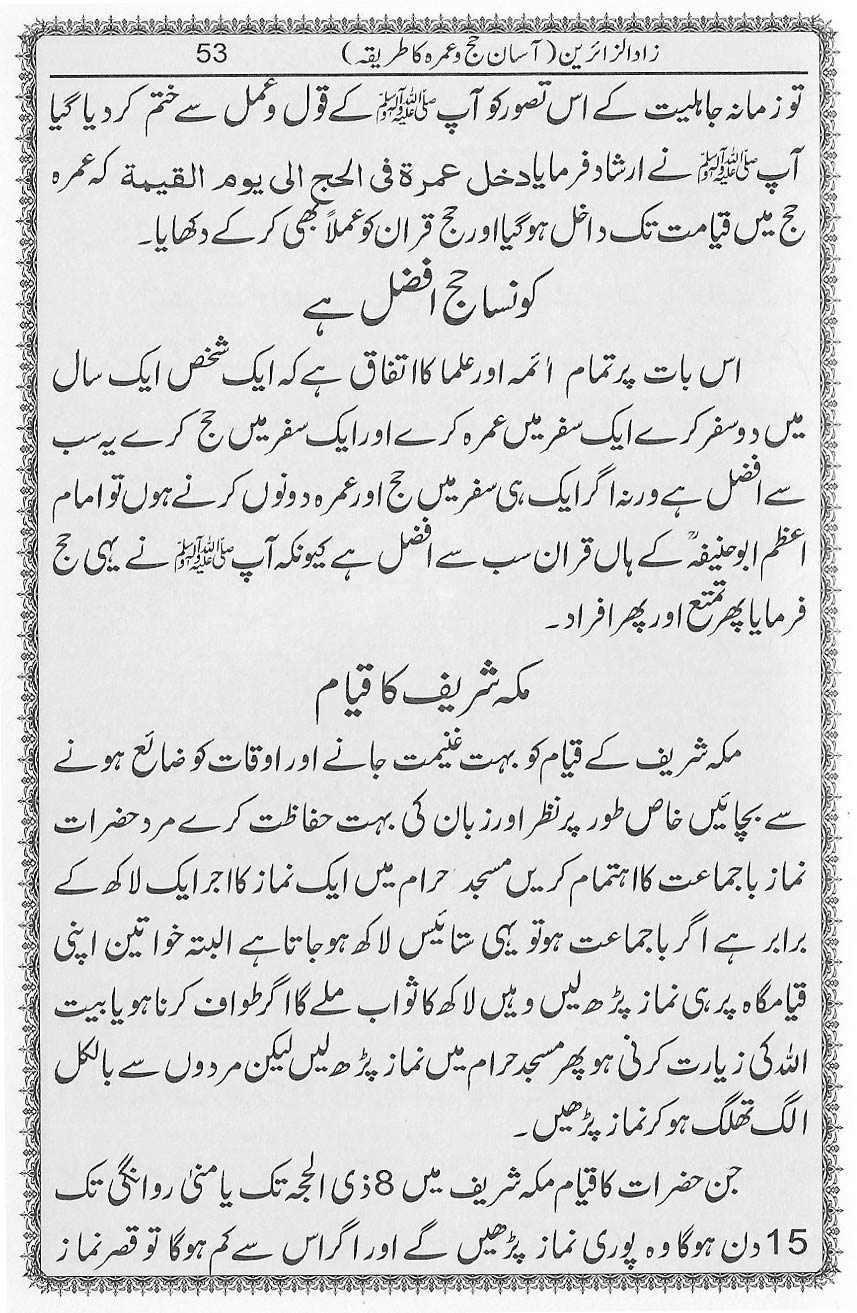 زاد الزائرین (آسان حج و عمرہ کا طریقہ) 53
تو زمانہ جاہلیت کے اس تصور کو آپ ﷺ کے قول و عمل سے ختم کر دیا گیا
آپ ﷺ نے ارشاد فرمایا دخل عمرة فی الحج الی یوم القیمة کہ عمرہ
حج میں قیامت تک داخل ہو گیا اور حج قران کو عملاً بھی کر کے دکھایا۔
کونسا حج افضل ہے
اس بات پر تمام ائمہ اور علما کا اتفاق ہے کہ ایک شخص ایک سال
میں دو سفر کرے ایک سفر میں عمرہ کرے اور ایک سفر میں حج کرے یہ سب
سے افضل ہے ورنہ اگر ایک ہی سفر میں حج اور عمرہ دونوں کرنے ہوں تو امام
اعظم ابو حنیفہؒ کے ہاں قران سب سے افضل ہے کیونکہ آپ ﷺ نے یہی حج
فرمایا پھر تمتع اور پھر افراد۔
مکہ شریف کا قیام
مکہ شریف کے قیام کو بہت غنیمت جانے اور اوقات کو ضائع ہونے
سے بچائیں خاص طور پر نظر اور زبان کی بہت حفاظت کرے مرد حضرات
نماز با جماعت کا اہتمام کریں مسجد حرام میں ایک نماز کا اجر ایک لاکھ کے
برابر ہے اگر باجماعت ہو تو یہی ستائیس لاکھ ہو جاتا ہے البتہ خواتین اپنی
قیامگاہ پر ہی نماز پڑھ لیں وہیں لاکھ کا ثواب ملے گا اگر طواف کرنا ہو یا بیت
اللہ کی زیارت کرنی ہو پھر مسجد حرام میں نماز پڑھ لیں لیکن مردوں سے بالکل
الگ تھلگ ہو کر نماز پڑھیں۔
جن حضرات کا قیام مکہ شریف میں 8 ذی الحجہ تک یا منیٰ روانگی تک
15 دن ہوگا وہ پوری نماز پڑھیں گے اور اگر اس سے کم ہوگا تو قصر نماز